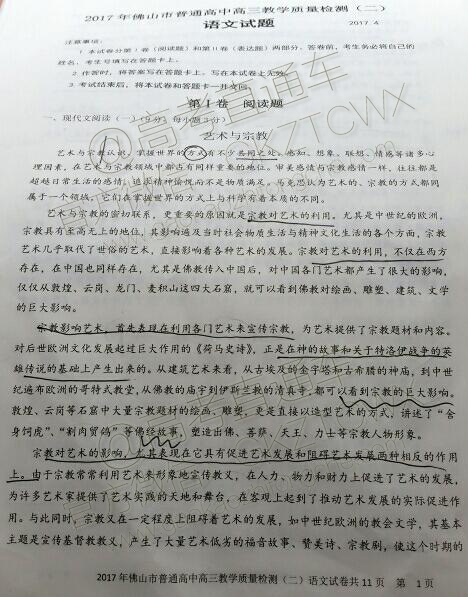 2017年佛山市普通高中高三教学质量检测（二）
语文试题
2017.4
注意事项：
1.本试卷分第Ⅰ卷（阅读题）和第Ⅱ卷（表达题）两部分。答卷前，考生务必将自己的
姓名、考生号填写在答题卡上。
2.作答时，将答案写在答题卡上。写在本试卷上无效。
3.考试结束后，将本试卷和答题卡一并交回。
第Ⅰ卷 阅读题
一、现代文阅读（一）（9分，每小题3分）
艺术与宗教
艺术与宗教认识、掌握世界的方式有不少共同之处。感知、想象、联想、情感等诸多心
理因素，在艺术与宗教领域中都占有同样重要的地位。审美感情与宗教感情一样，往往都是
超越日常生活的感情，追求精神愉悦而不是物质满足。马克思认为艺术的、宗教的方式都同
属于一个领域，它们在掌握世界的方式上与科学有着本质的不同。
艺术与宗教的密切联系，更重要的原因就是宗教对艺术的利用。尤其是中世纪的欧洲，
宗教具有至高无上的地位，其影响遍及当时社会物质生活与精神文化生活的各个方面，宗教
艺术几乎取代了世俗的艺术，直接影响着各种艺术的发展。宗教对艺术的利用，不仅在西方
存在，在中国也同样存在，尤其是佛教传入中国后，对中国各门艺术都产生了很大的影响，
仅仅从敦煌、云岗、龙门、麦积山这四大石窟，就可以看到佛教对绘画、雕塑、建筑、文学
的巨大影响。
宗教影响艺术，首先表现在利用各门艺术来宣传宗教，为艺术提供了宗教题材和内容。
对后世欧洲文化发展起过巨大作用的《荷马史诗》，正是在神的故事和关于特洛伊战争的英
雄传说的基础上产生出来的。从建筑艺术来看，从古埃及的金字塔和古希腊的神庙，到中世
纪遍布欧洲的哥特式教堂，从佛教的庙宇到伊斯兰教的清真寺，都可以看到宗教的巨大影响。
敦煌、云岗等石窟中大量宗教题材的绘画、雕塑，更是直接以造型艺术的方式，讲述了“舍
身饲虎”、“割肉贸鸽”等佛经故事，塑造出佛、菩萨、天王、力士等宗教人物形象。
宗教对艺术的影响，尤其表现在它具有促进艺术发展和阻碍艺术发展两种相反的作用
上。由于宗教常常利用艺术来形象地宣传教义，在人力、物力和财力上促进了艺术的发展，
为许多艺术家提供了艺术实践的天地和舞台，在客观上起到了推动艺术发展的实际促进作
用。与此同时，宗教又在一定程度上阻碍着艺术的发展，如中世纪欧洲的教会文学，其基本
主题是宣传基督教教义，产生了大量艺术低劣的福音故事、赞美诗、宗教剧，使这个时期的
2017年佛山市普通高中高三教学质量检测（二）语文试题共11页 第 1页
@高考直通车
ZTCWX